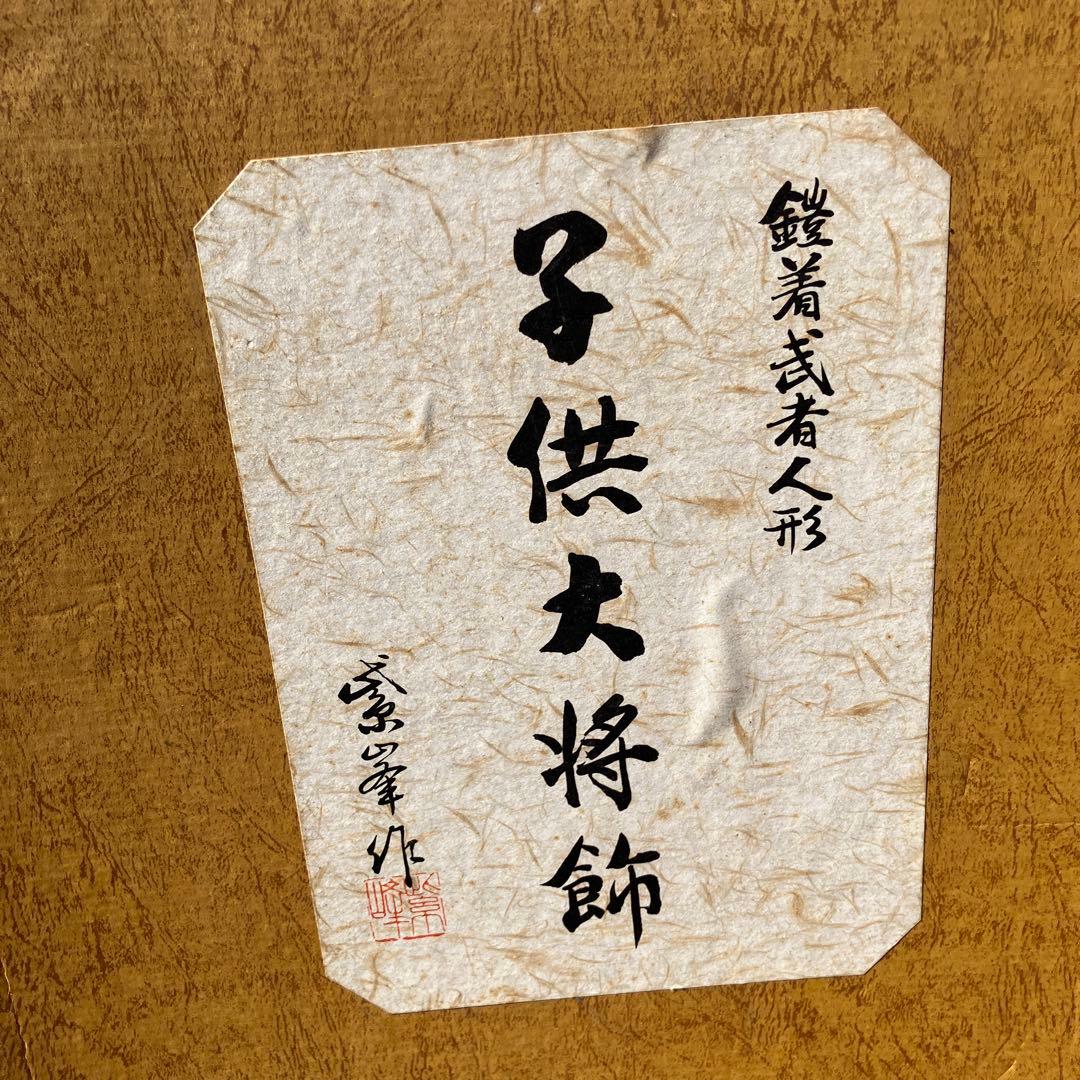 鎧着武者人形
子供大将飾
紫峯作
紫峰